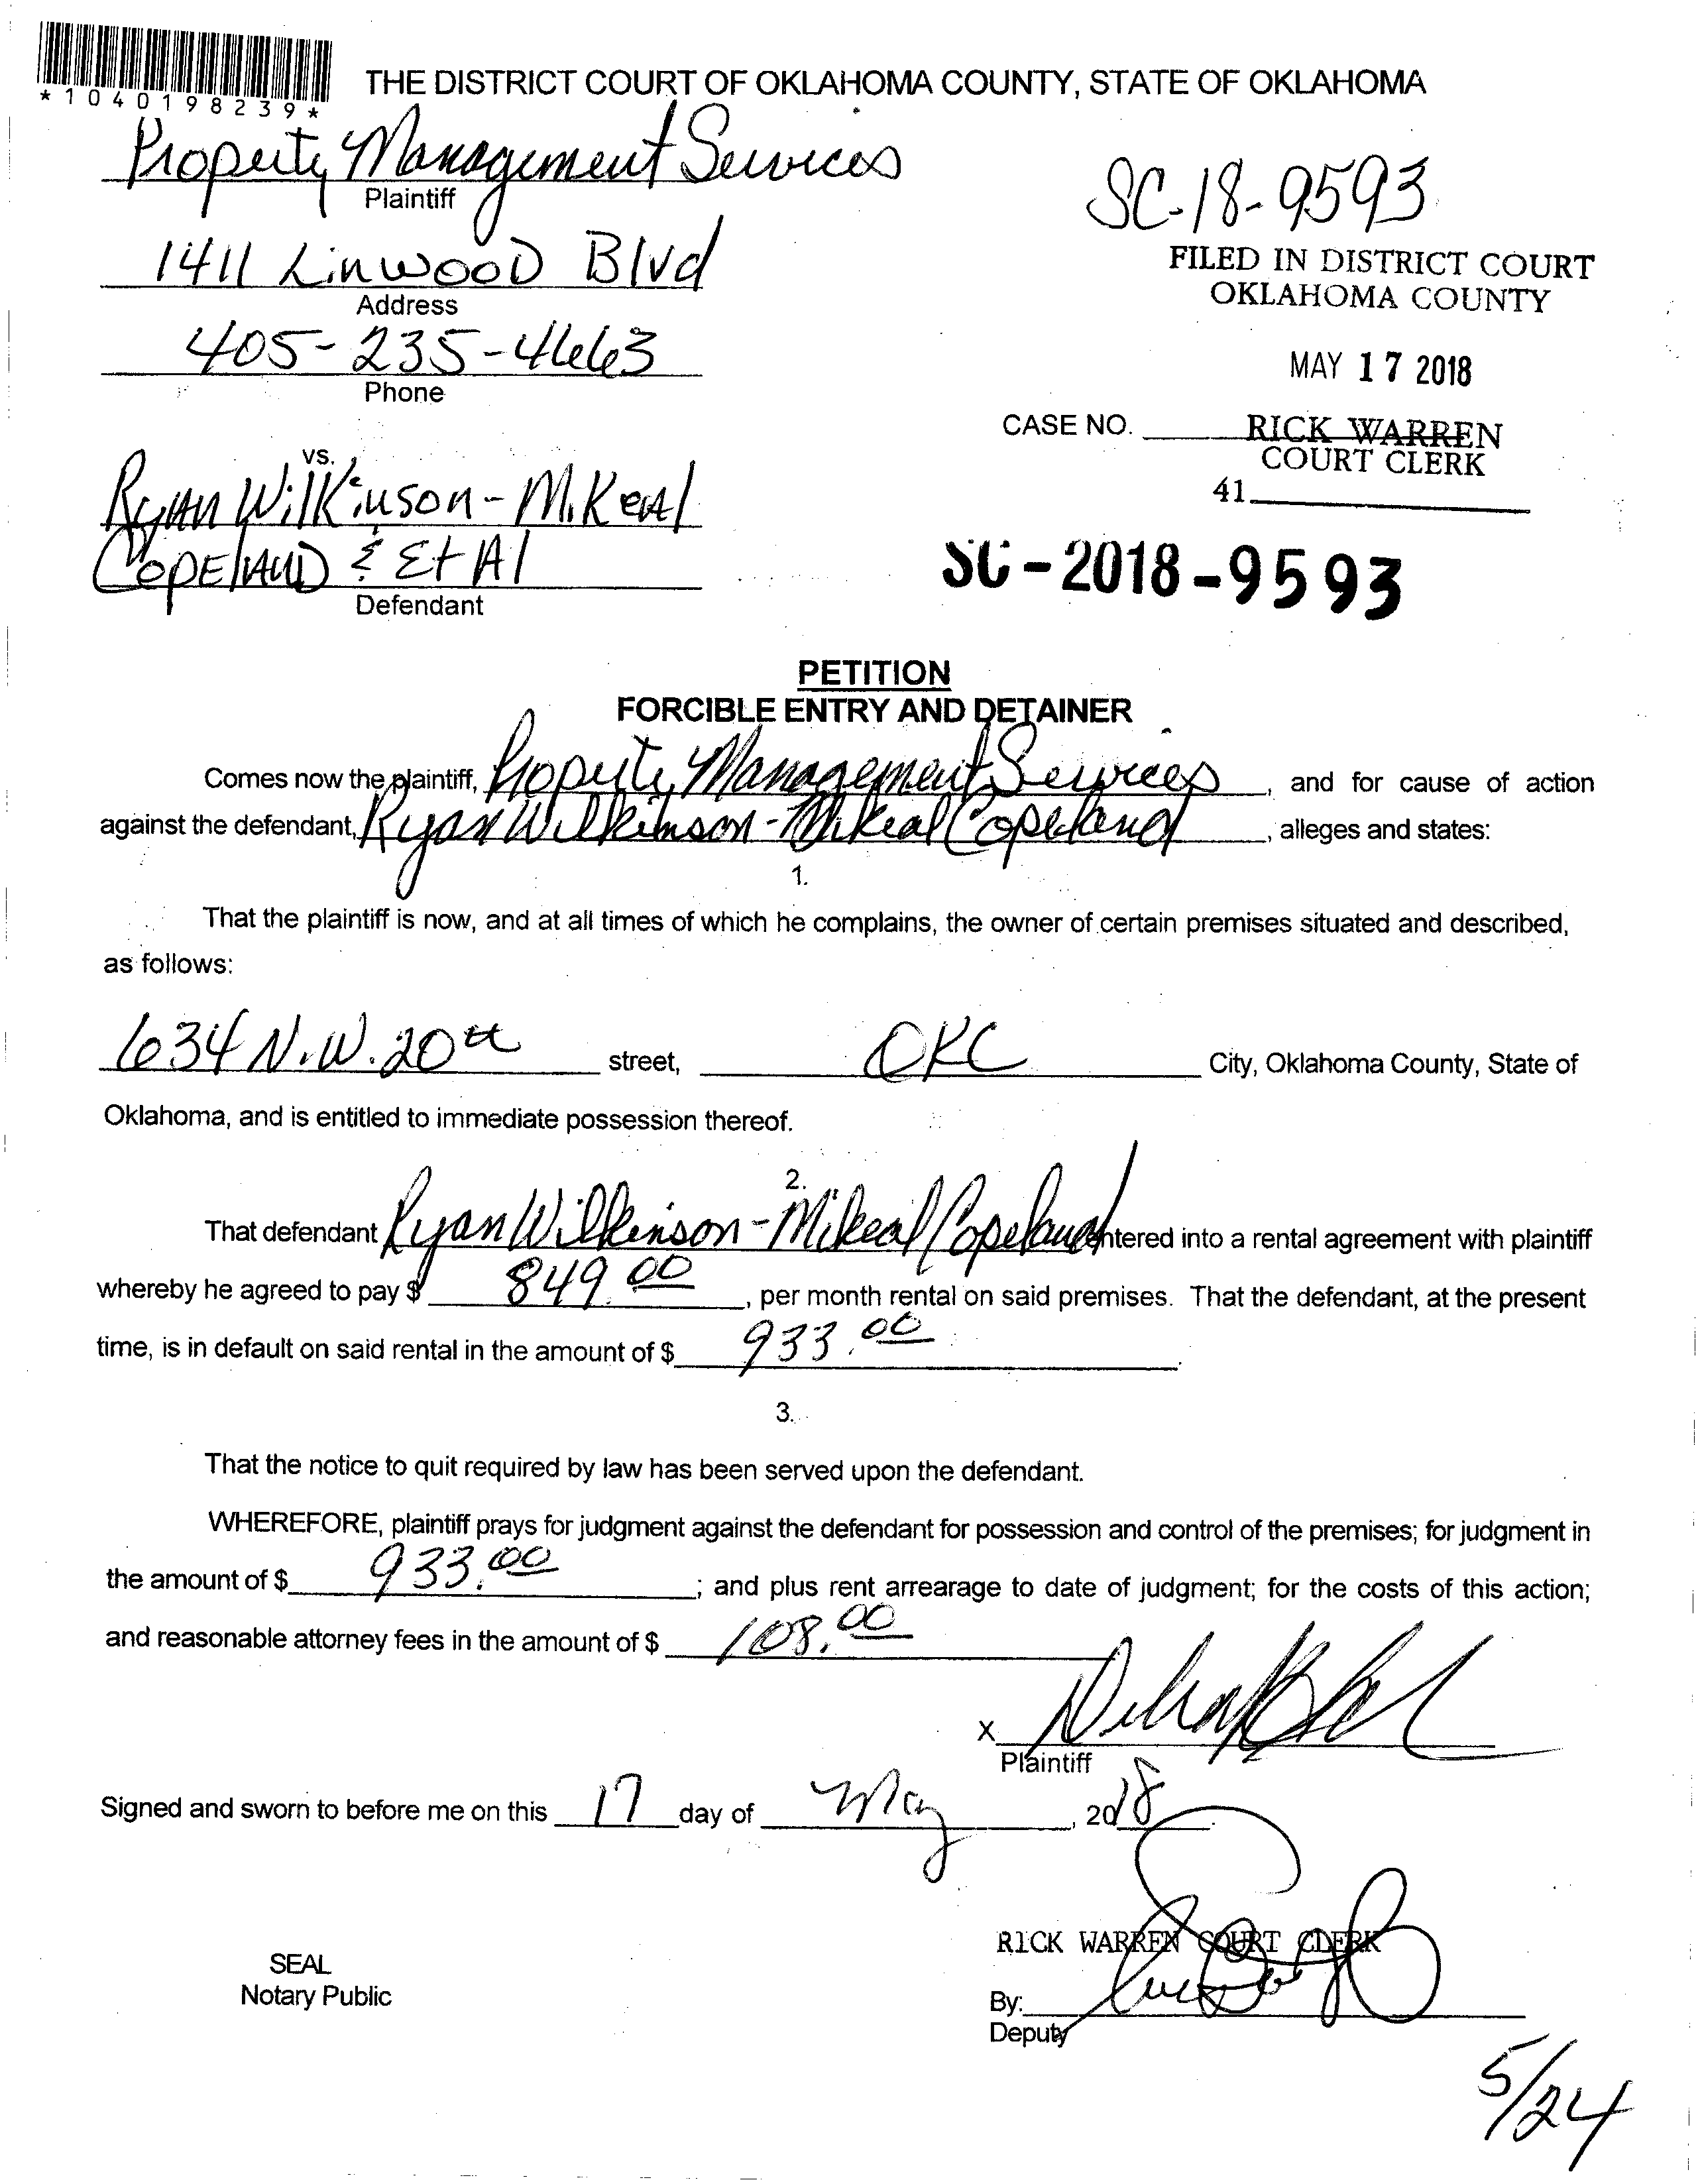 *1040198239*
THE DISTRICT COURT OF OKLAHOMA COUNTY, STATE OF OKLAHOMA
Property Management Services
Plaintiff
SC-18-9593
1411 LinwooD Blvd
Address
FILED IN DISTRICT COURT
OKLAHOMA COUNTY
405-235-4663
Phone
MAY 17 2018
CASE NO. RICK WARREN
COURT CLERK
41
vs.
Ryan Wilkinson - MiKeal
Copeland & Et Al
Defendant
SC-2018-9593
PETITION
FORCIBLE ENTRY AND DETAINER
Comes now the plaintiff, Property Management Services, and for cause of action
against the defendant, Ryan Wilkinson - Mikeal Copeland, alleges and states:
1.
That the plaintiff is now, and at all times of which he complains, the owner of certain premises situated and described,
as follows:
634 N.W. 20th street, OKC City, Oklahoma County, State of
Oklahoma, and is entitled to immediate possession thereof.
2.
That defendant Ryan Wilkinson - Mikeal Copeland entered into a rental agreement with plaintiff
whereby he agreed to pay $ 849.00, per month rental on said premises. That the defendant, at the present
time, is in default on said rental in the amount of $ 933.00.
3.
That the notice to quit required by law has been served upon the defendant.
WHEREFORE, plaintiff prays for judgment against the defendant for possession and control of the premises; for judgment in
the amount of $ 933.00; and plus rent arrearage to date of judgment; for the costs of this action;
and reasonable attorney fees in the amount of $ 108.00
X
Plaintiff
Signed and sworn to before me on this 17 day of May, 2018.
RICK WARREN COURT CLERK
SEAL
Notary Public
By:
Deputy
5/24